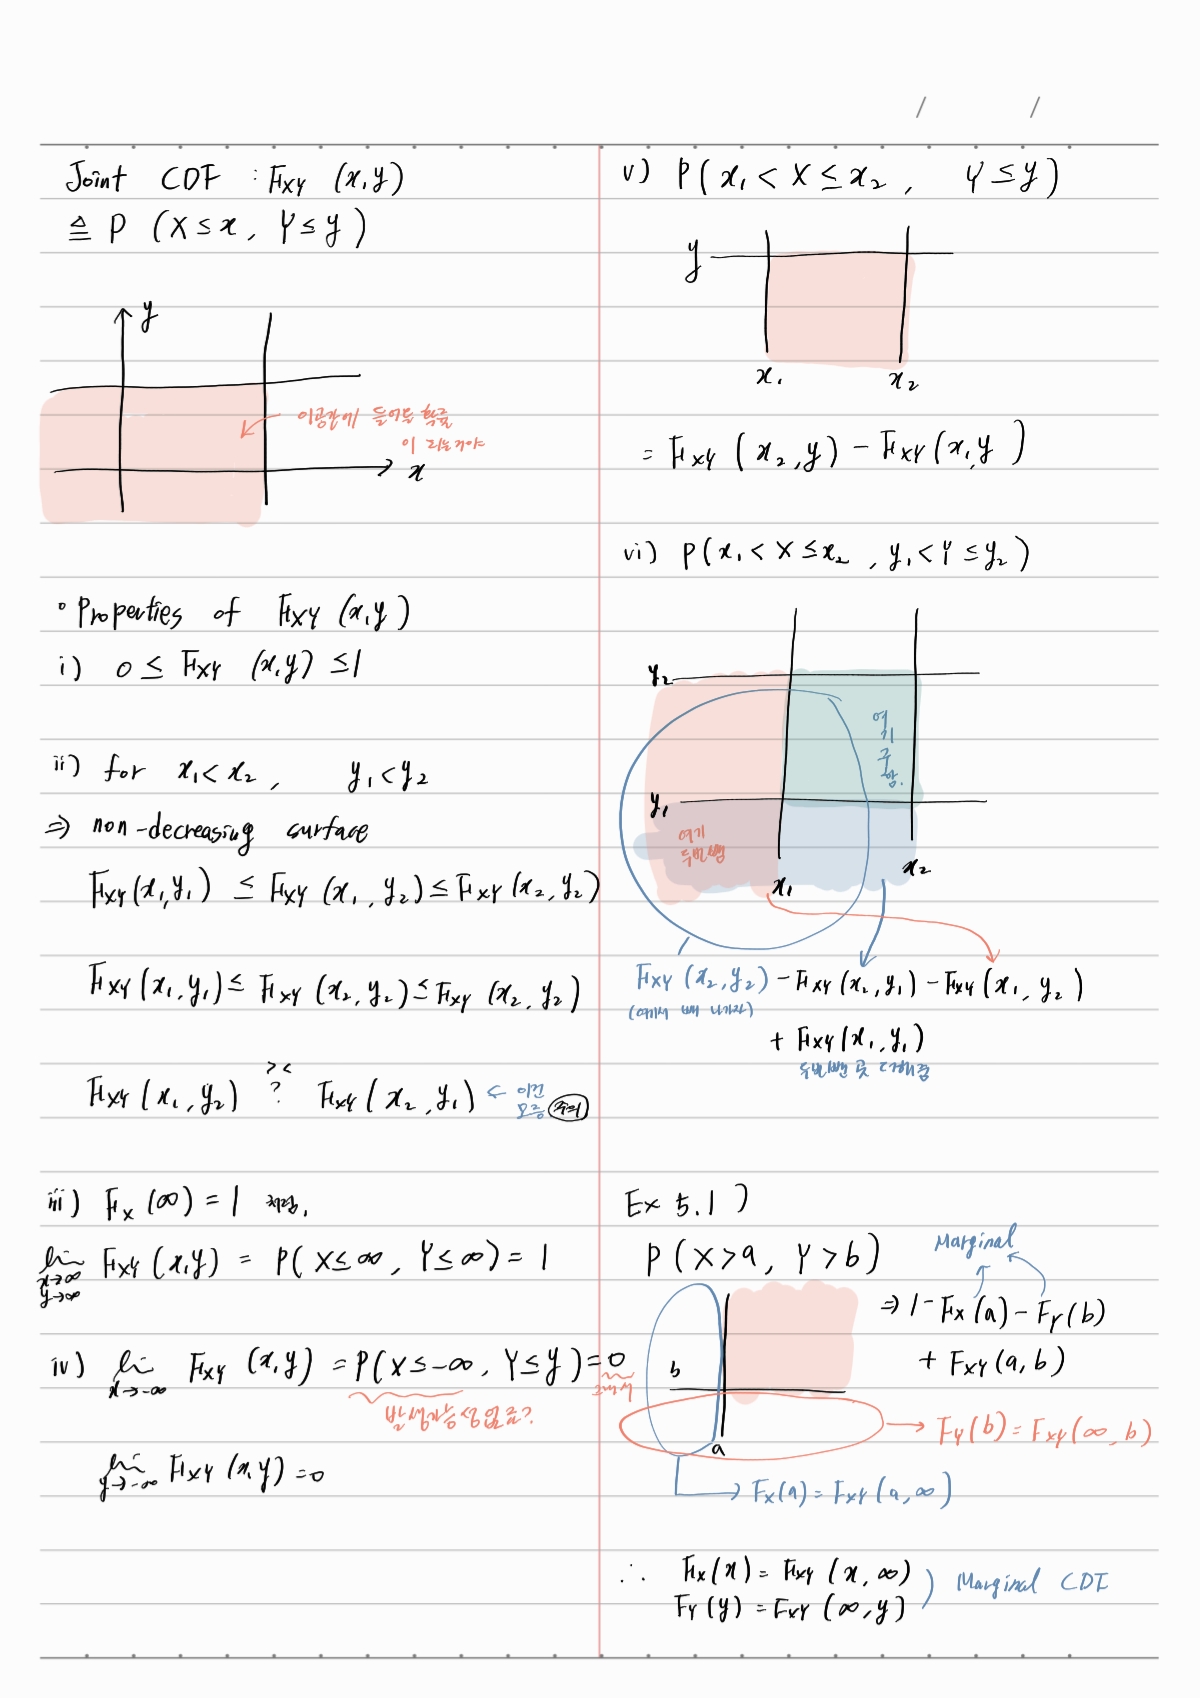 Joint CDF : F_XY (x,y)
≜ P (X≤x, Y≤y)
y
이공간에 들어올 확률
이 라는거야
x
° Properties of F_XY (x,y)
i) 0 ≤ F_XY (x,y) ≤ 1
ii) for x₁<x₂, y₁<y₂
⇒ non-decreasing surface
F_XY(x₁,y₁) ≤ F_XY (x₁,y₂) ≤ F_XY (x₂,y₂)
F_XY (x₁,y₁) ≤ F_XY (x₂,y₂) ≤ F_XY (x₂,y₂)
><
F_XY (x₁,y₂) ? F_XY (x₂,y₁) ← 이건
모름 주의
iii) F_X (∞) = 1 처럼,
lim x→∞ y→∞ F_XY (x,y) = P(X≤∞, Y≤∞) = 1
iv) lim x→-∞ F_XY (x,y) = P(X≤-∞, Y≤y) = 0
그래서
발생가능성 없죠?
lim y→-∞ F_XY (x,y) = 0
v) P(x₁<X≤x₂, Y≤y)
y
x₁ x₂
= F_XY (x₂,y) - F_XY (x,y)
vi) P(x₁<X≤x₂, y₁<Y≤y₂)
y₂
여기
구함.
y₁
여기
두번뺌
x₁ x₂
F_XY (x₂,y₂) - F_XY (x₂,y₁) - F_XY (x₁,y₂)
(여기서 빼 나가자)
+ F_XY (x₁,y₁)
두번뺀 곳 더해줌
Ex 5.1)
P(X>a, Y>b)
Marginal
⇒ 1 - F_X(a) - F_Y(b)
+ F_XY(a,b)
b
a
→ F_Y(b) = F_XY(∞,b)
→ F_X(a) = F_XY(a,∞)
∴ F_X(x) = F_XY (x,∞)
F_Y(y) = F_XY (∞,y)
) Marginal CDF